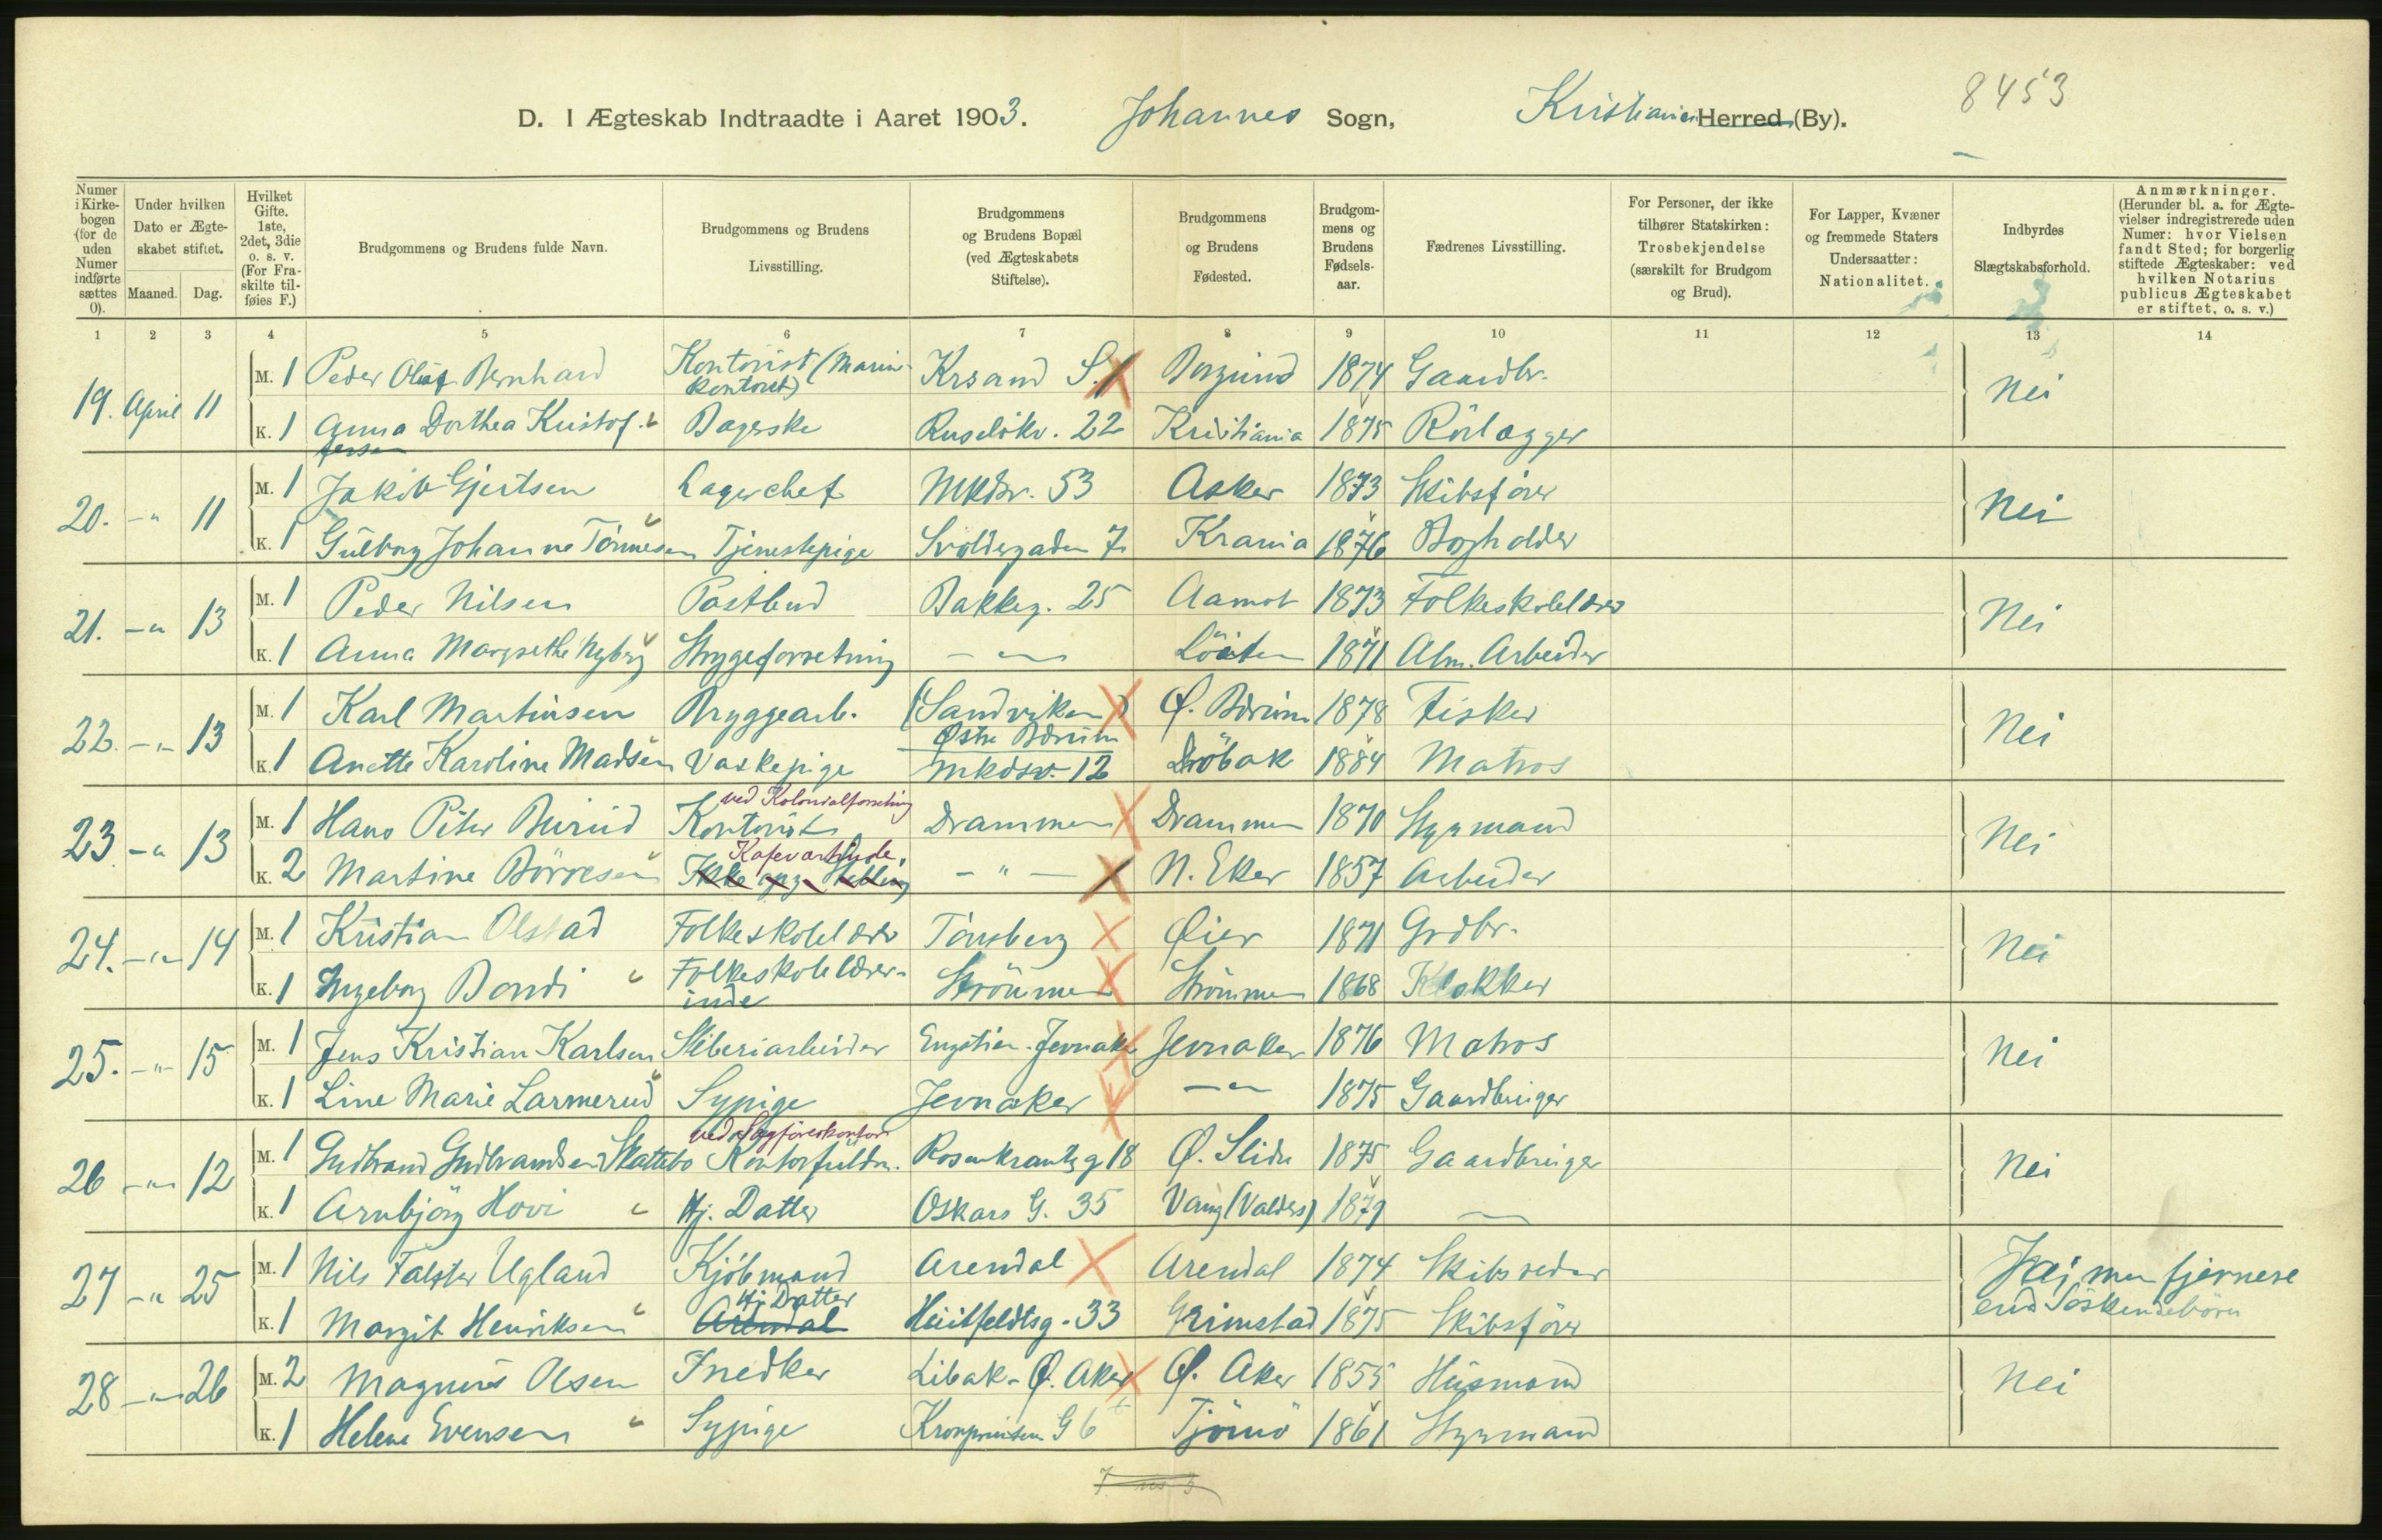 8453
D. I Ægteskab Indtraadte i Aaret 1903. Johannes Sogn, Kristiania Herred (By).
Numer i Kirkebogen (for de uden Numer indførte sættes 0).
Under hvilken Dato er Ægteskabet stiftet.
Maaned. Dag.
Hvilket Gifte. 1ste, 2det, 3die o. s. v. (For Fraskilte tilføies F.)
Brudgommens og Brudens fulde Navn.
Brudgommens og Brudens Livsstilling.
Brudgommens og Brudens Bopæl (ved Ægteskabets Stiftelse).
Brudgommens og Brudens Fødested.
Brudgommens og Brudens Fødselsaar.
Fædrenes Livsstilling.
For Personer, der ikke tilhører Statskirken: Trosbekjendelse (særskilt for Brudgom og Brud).
For Lapper, Kvæner og fremmede Staters Undersaatter: Nationalitet.
Indbyrdes Slægtskabsforhold.
Anmærkninger. (Herunder bl. a. for Ægtevielser indregistrerede uden Numer: hvor Vielsen fandt Sted; for borgerlig stiftede Ægteskaber: ved hvilken Notarius publicus Ægteskabet er stiftet, o. s. v.)
1 2 3 4 5 6 7 8 9 10 11 12 13 14
19. April 11 M. 1 Peder Olaf Bernhard Kontorist (Marinkontoret) Krsand S. Borgund 1874 Gaardbr. Nei
K. 1 Anna Dorthea Kristoffersen Bagerske Ruseløkv. 22 Kristiania 1875 Rörlægger
20. -"- 11 M. 1 Jakob Gjertsen Lagerchef Mkdsv. 53 Asker 1873 Skibsfører Nei
K. 1 Gulborg Johanne Tönnesen Tjenestepige Svoldergaden 7 Krania 1876 Bogholder
21. -"- 13 M. 1 Peder Nilsen Postbud Bakkeg. 25 Aamot 1873 Folkeskolelærer Nei
K. 1 Anna Margrethe Nyberg Strygeforretning -"- Löiten 1871 Alm. Arbeider
22. -"- 13 M. 1 Karl Martinsen Bryggearb. (Sandviken) Østre Bærum Ø. Bærum 1878 Fisker Nei
K. 1 Anette Karoline Madsen Vaskepige Mkdsv. 12 Dröbak 1884 Matros
23 -"- 13 M. 1 Hans Peter Burud Kontorist ved Kolonialforretning Drammen Drammen 1870 Styrmand Nei
K. 2 Martine Börresen Kafevertinde. Ikke opg. Stilling -"- N. Eker 1857 Arbeider
24. -"- 14 M. 1 Kristian Olstad Folkeskolelærer Tönsberg Øier 1871 Grdbr. Nei
K. 1 Ingeborg Bondi Folkeskolelærerinde Strömmen Strömmen 1868 Klokker
25. -"- 15 M. 1 Jens Kristian Karlsen Sliberiarbeider Engstien. Jevnaker Jevnaker 1876 Matros Nei
K. 1 Line Marie Larmerud Sypige Jevnaker -"- 1875 Gaardbruger
26 -"- 12 M. 1 Gudbrand Gudbrandsen Slattebo Kontorfuldm. ved Sagförerkontor Rosenkrantzg 18 Ø. Slidre 1875 Gaardbruger Nei
K. 1 Arnbjörg Hovi Hj. Datter Oskars G. 35 Vang (Valders) 1879 -"-
27 -"- 25 M. 1 Nils Falster Ugland Kjöbmand Arendal Arendal 1874 Skibsreder Nei, men fjernere end Söskendebörn
K. 1 Margit Henriksen Hj. Datter Arendal Huitfeldtsg. 33 Grimstad 1875 Skibsförer
28 -"- 26 M. 2 Magnus Olsen Snedker Libak - Ø. Aker Ø. Aker 1855 Husmand Nei
K. 1 Helene Evensen Sypige Kronprinsens G 6 Tjömö 1861 Styrmand